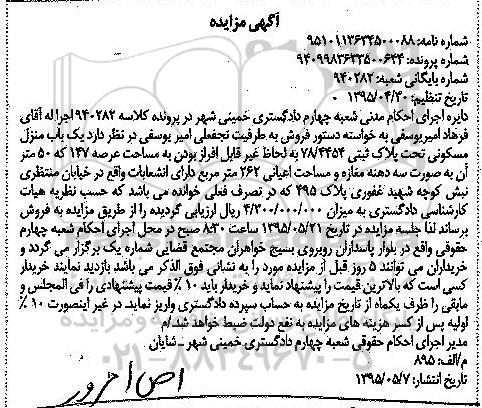 آگهی مزایده
شماره نامه: ۹۵۱۰۱۱۳۶۳۴۵۰۰۰۸۸
شماره پرونده: ۹۴۰۹۹۸۳۶۳۳۵۰۰۶۴۴
شماره بایگانی شعبه: ۹۴۰۲۸۲
تاریخ تنظیم: ۱۳۹۵/۰۴/۳۰
دایره اجرای احکام مدنی شعبه چهارم دادگستری خمینی شهر در پرونده کلاسه ۹۴۰۲۸۲ اجرا له آقای
فرهاد امیریوسفی به خواسته دستور فروش به طرفیت نجفعلی امیر یوسفی در نظر دارد یک باب منزل
مسکونی تحت پلاک ثبتی ۷۸/۴۴۵۴ به لحاظ غیر قابل افراز بودن به مساحت عرصه ۱۴۷ که ۵۰ متر
آن به صورت سه دهنه مغازه و مساحت اعیانی ۲۶۲ متر مربع دارای انشعابات واقع در خیابان منتظری
نبش کوچه شهید غفوری پلاک ۴۹۵ که در تصرف فعلی خوانده می باشد که حسب نظریه هیات
کارشناسی دادگستری به میزان ۴/۳۰۰/۰۰۰/۰۰۰ ریال ارزیابی گردیده را از طریق مزایده به فروش
برساند لذا جلسه مزایده در تاریخ ۱۳۹۵/۰۵/۲۱ ساعت ۸:۳۰ صبح در محل اجرای احکام شعبه چهارم
حقوقی واقع در بلوار پاسداران روبروی بسیج خواهران مجتمع قضایی شماره یک برگزار می گردد و
خریداران می توانند ۵ روز قبل از مزایده مورد را به نشانی فوق الذکر می باشد بازدید نمایند خریدار
کسی است که بالاترین قیمت را پیشنهاد نماید و خریدار باید ۱۰ ٪ قیمت پیشنهادی را فی المجلس و
مابقی را ظرف یکماه از تاریخ مزایده به حساب سپرده دادگستری واریز نماید. در غیر اینصورت ۱۰ ٪
اولیه پس از کسر هزینه های مزایده به نفع دولت ضبط خواهد شد/م
مدیر اجرای احکام حقوقی شعبه چهارم دادگستری خمینی شهر - شایان
م/الف: ۸۹۵
تاریخ انتشار: ۱۳۹۵/۰۵/۷
۰۲۱-۸۸۳۴۹۶۷۰-۵